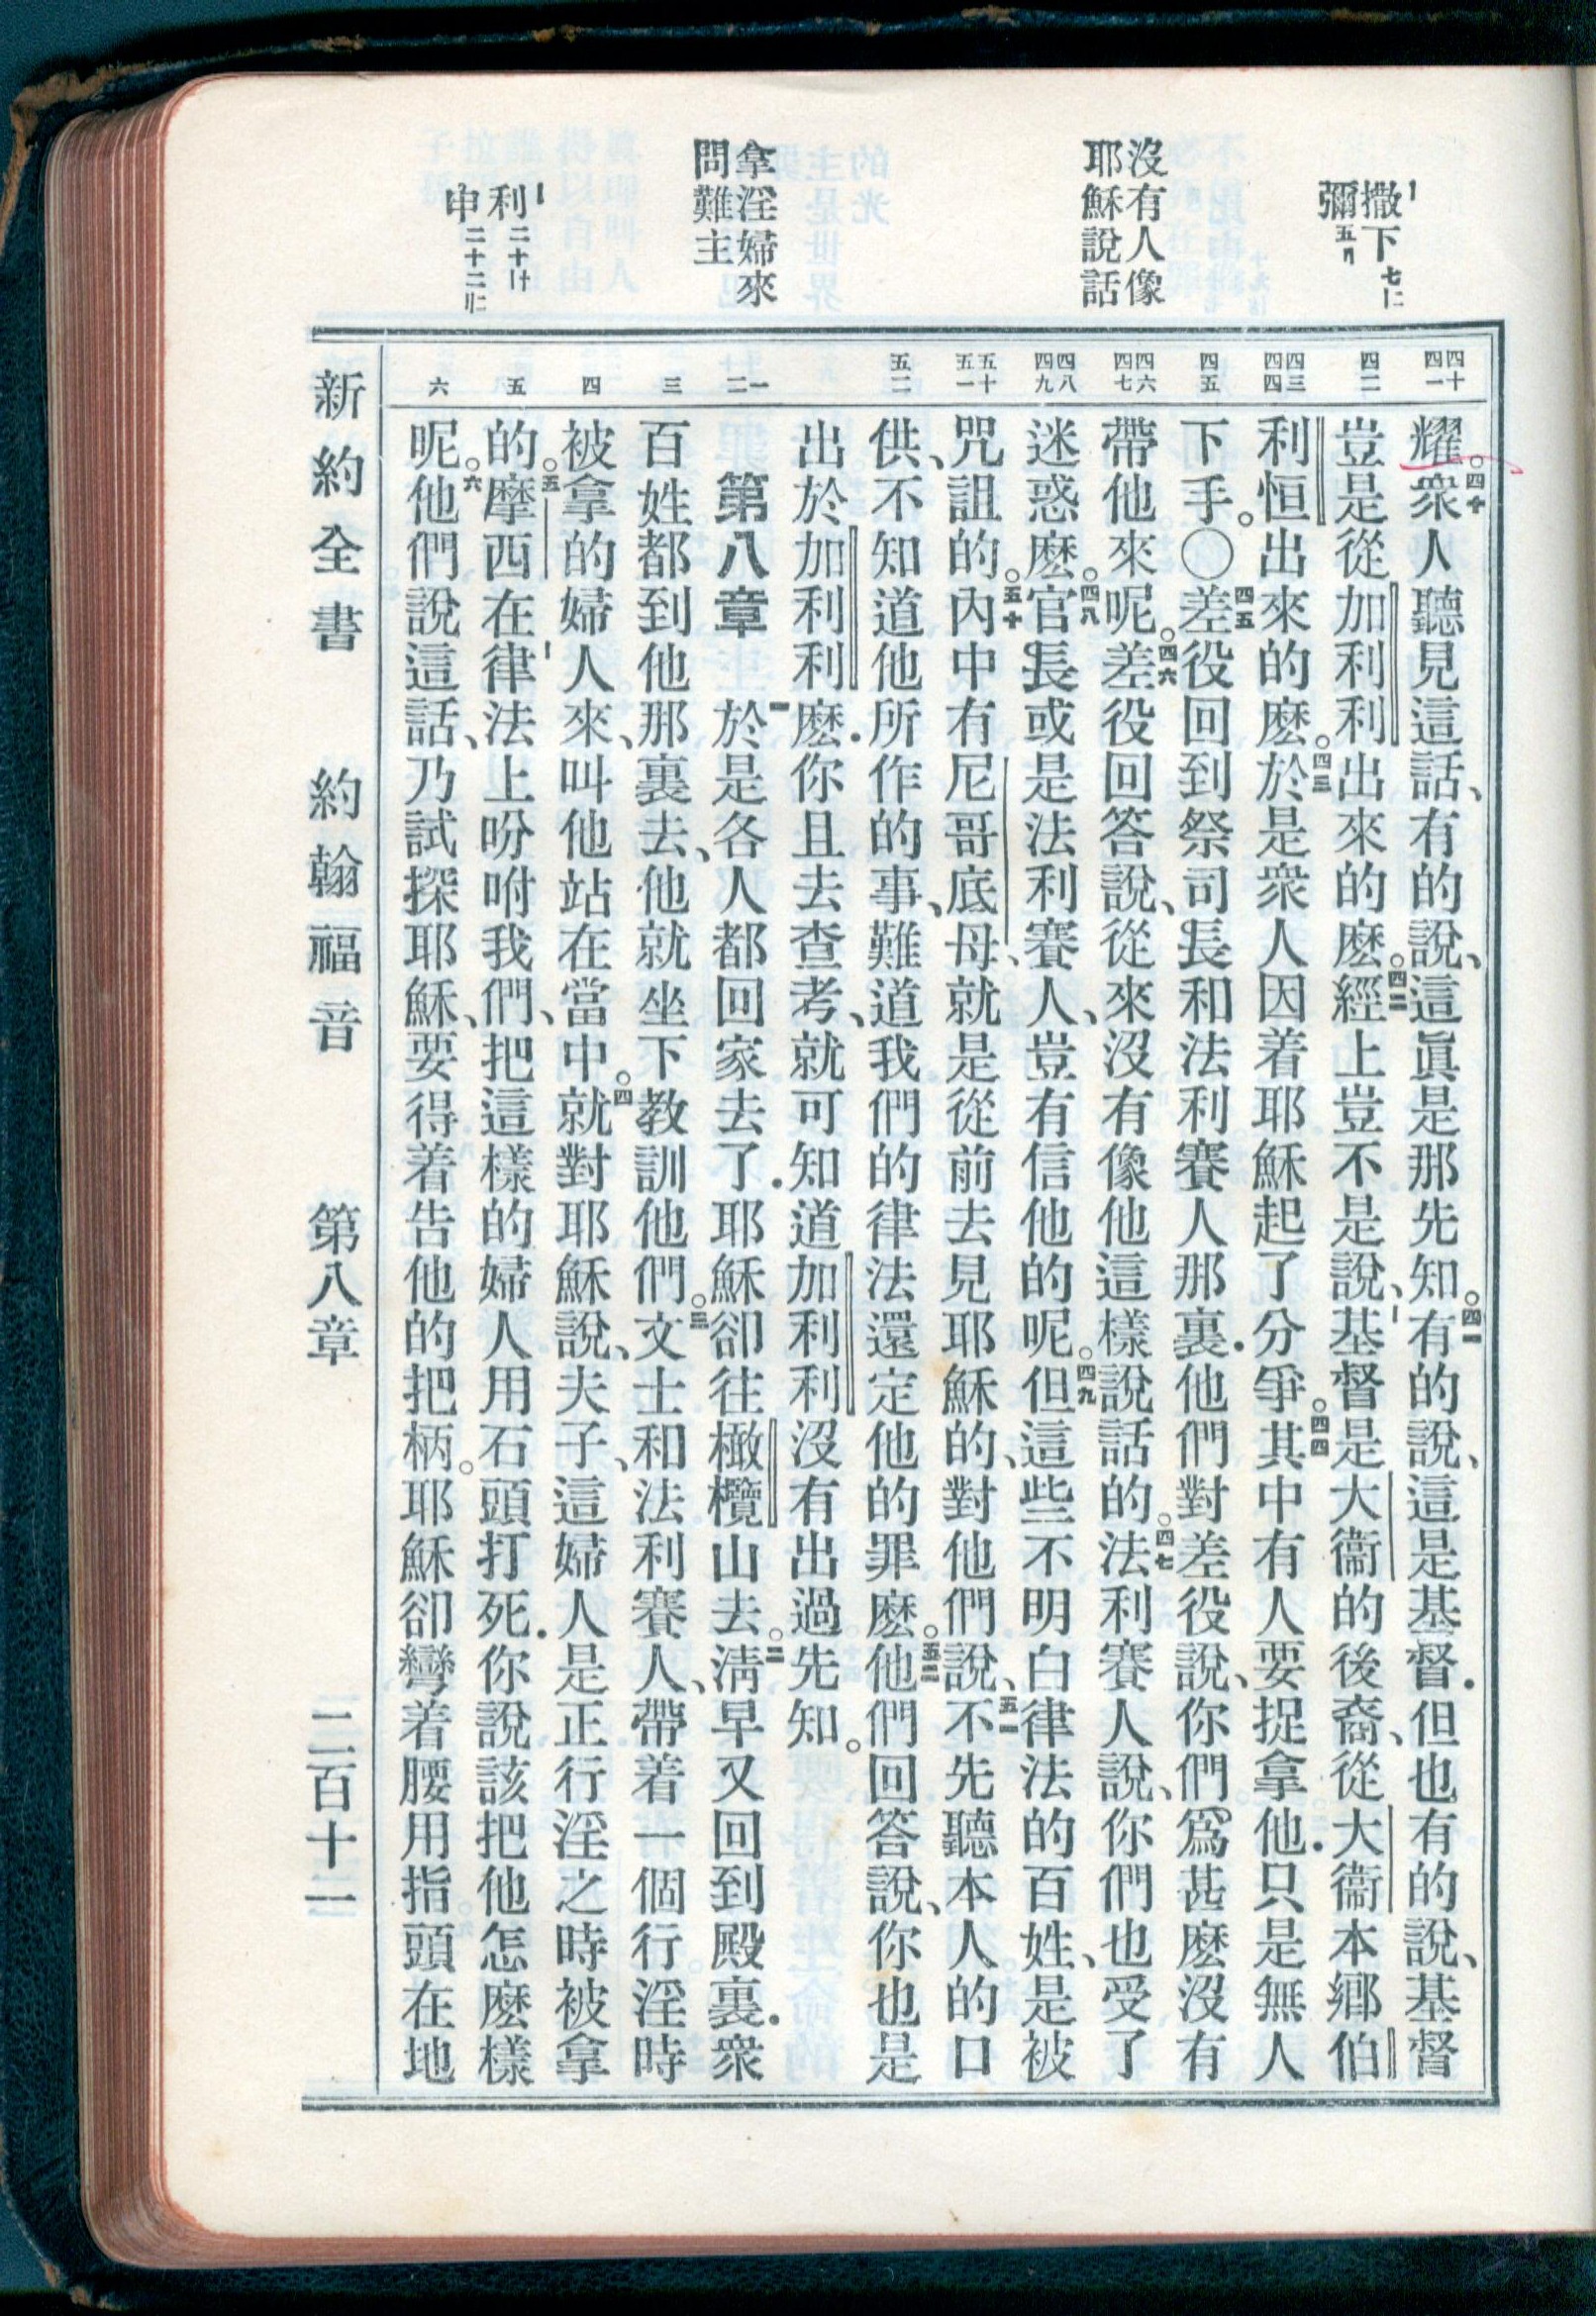 撒下七12
彌五2
沒有人像
耶穌說話
拿淫婦來
問難主
利二十10
申二十二22
四十 四一
四二
四三 四四
四五
四六 四七
四八 四九
五十 五一
五二
一 二
三
四
五
六
耀。四十衆人聽見這話、有的說、這眞是那先知。四一有的說、這是基督．但也有的說、基督
豈是從加利利出來的麽。四二經上豈不是說、基督是大衞的後裔、從大衞本鄉伯
利恒出來的麽。四三於是衆人因着耶穌起了分爭。四四其中有人要捉拿他．只是無人
下手。〇四五差役回到祭司長和法利賽人那裏．他們對差役說、你們爲甚麽沒有
帶他來呢。四六差役回答說、從來沒有像他這樣說話的。四七法利賽人說、你們也受了
迷惑麽。四八官長或是法利賽人、豈有信他的呢。四九但這些不明白律法的百姓、是被
咒詛的。五十內中有尼哥底母、就是從前去見耶穌的、對他們說、五一不先聽本人的口
供、不知道他所作的事、難道我們的律法還定他的罪麽。五二他們回答說、你也是
出於加利利麽．你且去查考、就可知道加利利沒有出過先知。
第八章 一於是各人都回家去了．耶穌卻往橄欖山去。二淸早又回到殿裏．衆
百姓都到他那裏去、他就坐下教訓他們。三文士和法利賽人、帶着一個行淫時
被拿的婦人來、叫他站在當中。四就對耶穌說、夫子、這婦人是正行淫之時被拿
的。五摩西在律法上吩咐我們、把這樣的婦人用石頭打死．你說該把他怎麽樣
呢。六他們說這話、乃試探耶穌、要得着告他的把柄。耶穌卻彎着腰用指頭在地
新約全書 約翰福音 第八章 二百十一